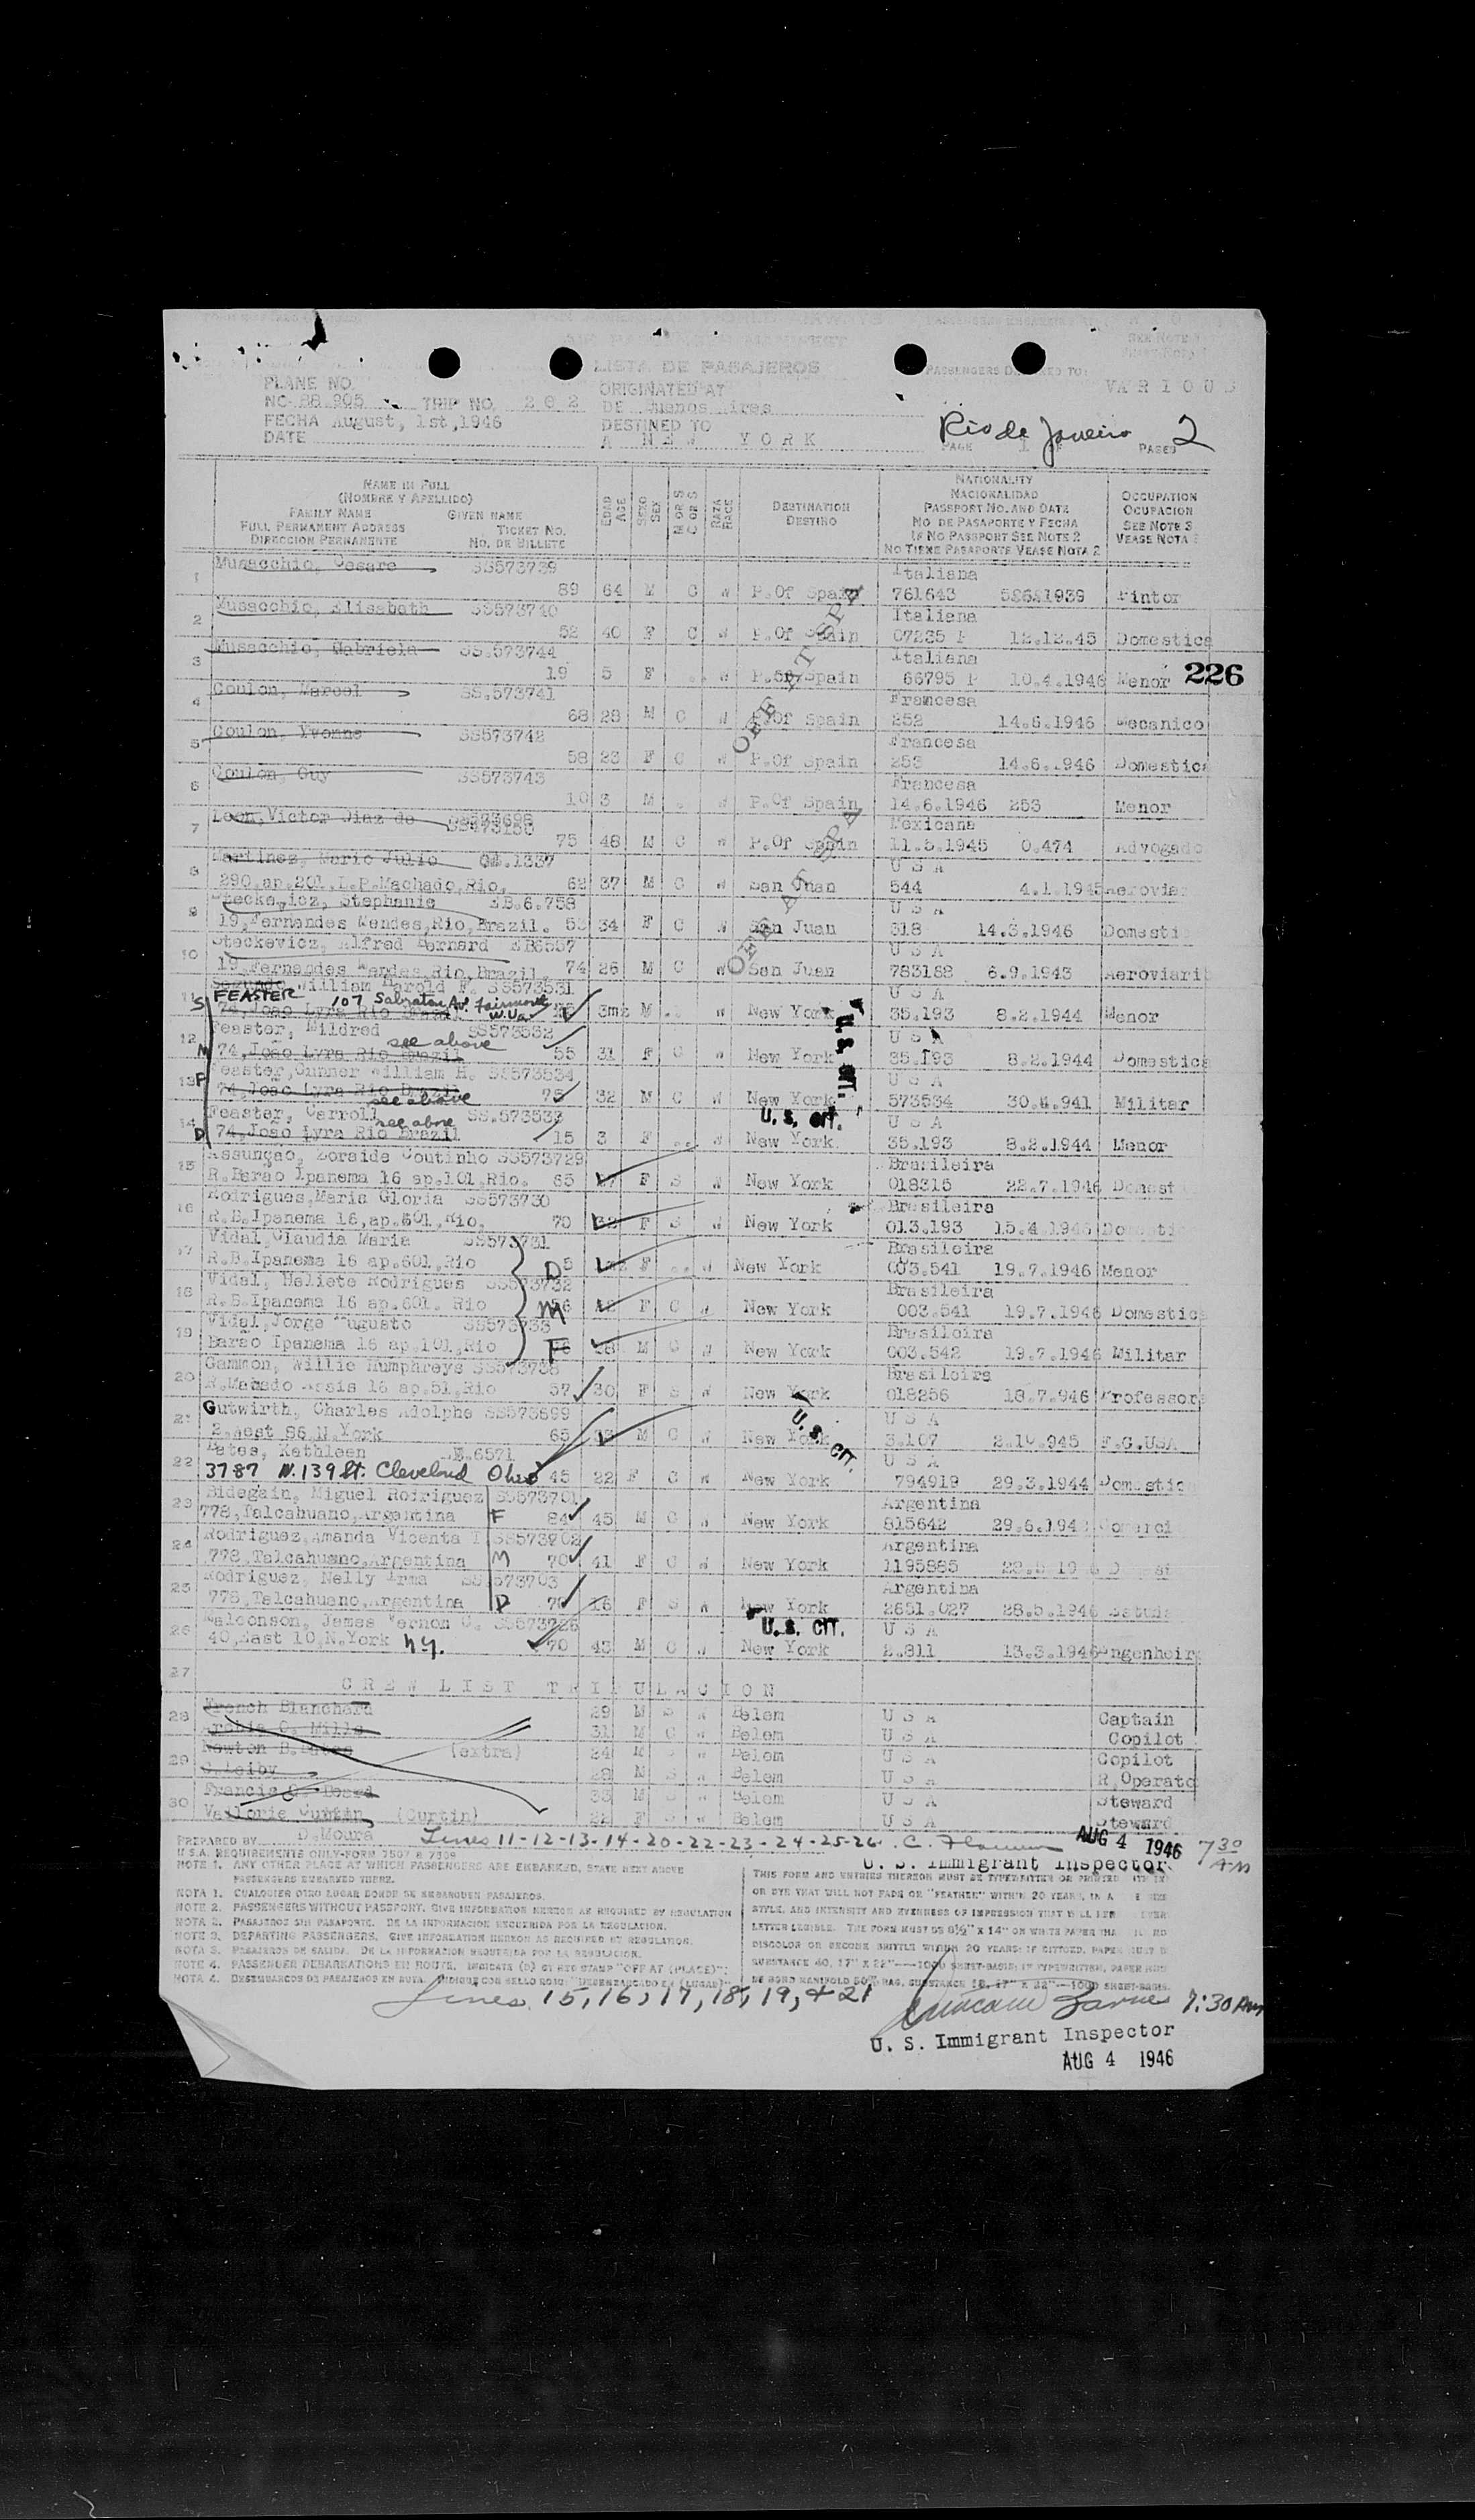 LISTA DE PASAJEROS
SEE NOTE
PASSENGERS DESTINED TO:
VARIOUS
PLANE NO.
NC 88 905 TRIP NO. 202
FECHA August, 1st, 1946
DATE
ORIGINATED AT
DE Buenos Aires
DESTINED TO
A NEW YORK
Rio de Janeiro
PAGE 1 PAGES 2
NAME IN FULL
(NOMBRE Y APELLIDO)
FAMILY NAME GIVEN NAME
FULL PERMANENT ADDRESS TICKET NO.
DIRECCION PERMANENTE NO. DE BILLETE
EDAD AGE
SEXO SEX
M OR S C O S
RAZA RACE
DESTINATION
DESTINO
NATIONALITY
NACIONALIDAD
PASSPORT NO. AND DATE
NO. DE PASAPORTE Y FECHA
IF NO PASSPORT SEE NOTE 2
NO TIENE PASAPORTE VEASE NOTA 2
OCCUPATION
OCUPACION
SEE NOTE 3
VEASE NOTA 3
1 Musacchio, Cesare SS573739 Italiana
89 64 M C W P.Of Spain 761643 1939 Pintor
2 Musacchio, Elisabeth SS573740 Italiana
52 40 F C W P.Of Spain 07235 P 12.12.45 Domestica
3 Musacchio, Gabriela SS.573744 Italiana
19 5 F .. W P.Of Spain 66795 P 10.4.1946 Menor
226
4 Coulon, Marcel SS.573741 Francesa
68 28 M C W P.Of Spain 252 14.6.1946 Mecanico
5 Coulon, Yvonne SS573742 Francesa
58 23 F C W P.Of Spain 253 14.6.1946 Domestica
6 Coulon, Guy SS573743 Francesa
10 3 M .. W P.Of Spain 14.6.1946 253 Menor
OFF AT SPA
7 Leon, Victor Diaz de SS473150 Mexicana
75 48 M C W P.Of Spain 11.5.1945 0.474 Advogado
8 Martinez, Mario Julio 1337 U S A
290, ap.201, L.P.Machado, Rio. 62 37 M C W San Juan 544 4.1.1945
9 Steckevicz, Stephanie EB.6.758 U S A
19, Fernandes Mendes, Rio, Brazil. 53 34 F C W San Juan 318 14.3.1946 Domesti
10 Steckevicz, Alfred Bernard EB6557 U S A
19, Fernandes Mendes, Rio, Brazil. 74 26 M C W San Juan 783182 6.9.1943 Aeroviari
11 William Harold F. SS573531 U S A
S FEASTER 107 Sabraton Av. Fairmont W.Va.
74, Joao Lyra Rio Brazil 3ms M .. W New York 35.193 8.2.1944 Menor
U.S. CIT.
12 Feaster, Mildred SS573532 U S A
see above
M 74, Joao Lyra Rio Brazil 55 31 F C W New York 35.193 8.2.1944 Domestica
13 Feaster, Gunner William H. SS573534 U S A
F 74, Joao Lyra Rio Brazil 75 32 M C W New York 573534 941 Militar
see above
U.S. CIT.
14 Feaster, Carroll SS.573533 U S A
see above
D 74, Joao Lyra Rio Brazil 15 3 F .. W New York 35.193 8.2.1944 Menor
15 Assunçao, Zoraide Coutinho SS573729 Brasileira
R.Barão Ipanema 16 ap.101, Rio. 65 F S W New York 018315 22.7.1946 Domest
16 Rodrigues, Maria Gloria SS573730 Brasileira
R.B.Ipanema 16, ap.601, Rio. 70 F S W New York 013.193 15.4.1946 Domesti
17 Vidal, Claudia Maria SS573731 Brasileira
R.B.Ipanema 16 ap.601, Rio D 5 F .. W New York 003.541 19.7.1946 Menor
18 Vidal, Heliete Rodrigues SS573732 Brasileira
R.B.Ipanema 16 ap.601. Rio M F C W New York 003.541 19.7.1946 Domestica
19 Vidal, Jorge Augusto SS573733 Brasileira
Barão Ipanema 16 ap.101, Rio F 28 M C W New York 003.542 19.7.1946 Militar
20 Gammon, Willie Humphreys SS573738 Brasileira
R.Machado Assis 16 ap.51, Rio 57 30 F S W New York 018256 18.7.946 Professora
21 Gutwirth, Charles Adolphe SS573599 U S A
2, West 86 N.York 65 M C W New York 3.107 2.10.945 F.G.USA
U.S. CIT.
22 Bates, Kathleen 6571 U S A
3787 W. 139 St. Cleveland Ohio 45 22 F C W New York 794919 29.3.1944 Domestic
23 Bidegain, Miguel Rodriguez SS573701 Argentina
778, Talcahuano, Argentina F 84 45 M C W New York 815642 29.5.194 Comerci
24 Rodriguez, Amanda Vicenta SS573702 Argentina
778, Talcahuano, Argentina M 70 41 F C W New York 1195885
25 Rodriguez, Nelly Irma SS573703 Argentina
778, Talcahuano, Argentina D 70 16 F S W New York 2651.027 28.5.1946
26 Malconson, James Vernon C. SS573726 U.S. CIT. U S A
40, East 10, N.York N.Y. 70 43 M C W New York 2.811 13.3.1946 Engenheiro
27
CREW LIST TRIPULACION
28 French Blanchard 29 M S W Belem U S A Captain
Archie C. Mills 31 M C W Belem U S A Copilot
29 Newton B. (extra) 24 M S W Belem U S A Copilot
28 M S W Belem U S A R.Operato
30 Francis 33 M S W Belem U S A Steward
Vallorie Curtin (Curtin) 22 F S W Belem U S A Steward
PREPARED BY D.Moura
Lines 11-12-13-14-20-22-23-24-25-26
AUG 4 1946 7 30 AM
U. S. Immigrant Inspector
U S.A. REQUIREMENTS ONLY-FORM 7507 & 7509
NOTE 1. ANY OTHER PLACE AT WHICH PASSENGERS ARE EMBARKED, STATE NEXT ABOVE
PASSENGERS EMBARKED THERE.
NOTA 1. CUALQUIER OTRO LUGAR DONDE SE EMBARQUEN PASAJEROS.
NOTE 2. PASSENGERS WITHOUT PASSPORT. GIVE INFORMATION HEREON AS REQUIRED BY REGULATION
NOTA 2. PASAJEROS SIN PASAPORTE. DE LA INFORMACION REQUERIDA POR LA REGULACION.
NOTE 3. DEPARTING PASSENGERS. GIVE INFORMATION HEREON AS REQUIRED BY REGULATION.
NOTA 3. PASAJEROS DE SALIDA. DE LA INFORMACION REQUERIDA POR LA REGULACION.
NOTE 4. PASSENGER DEBARKATIONS EN ROUTE. INDICATE (D) BY RED STAMP "OFF AT (PLACE)":
NOTA 4. DESEMBARCOS DE PASAJEROS EN RUTA. INDIQUE CON SELLO ROJO: "DESEMBARCADO EN (LUGAR)"
THIS FORM AND ENTRIES THEREON MUST BE TYPEWRITTEN OR PRINTED
OR DYE THAT WILL NOT FADE OR "FEATHER" WITHIN 20 YEARS, IN A
STYLE, AND INTENSITY AND EVENNESS OF IMPRESSION THAT WILL
LETTER LEGIBLE. THE FORM MUST BE 8½" X 14" ON WHITE PAPER THA
DISCOLOR OR BECOME BRITTLE WITHIN 20 YEARS: IF DITTOED, PAPER MUST B
SUBSTANCE 40, 17" X 22"—1000 SHEET-BASIS: IF TYPEWRITTEN, PAPER
BE BOND MANIFOLD 50% RAG, SUBSTANCE 18, 17" X 22"—1000 SHEET-BASIS.
Lines 15, 16, 17, 18, 19, & 21 7:30 AM
U. S. Immigrant Inspector
AUG 4 1946